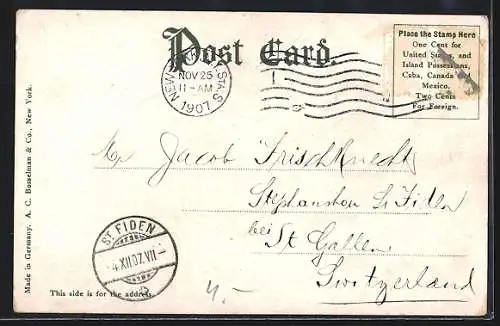 Post Card.
Place the Stamp Here
One Cent for
United States, and
Island Possessions,
Cuba, Canada
Mexico.
Two Cents
For Foreign.
NEW YORK
STA.
NOV 25
11-AM
1907
Mr Jacob Frischknecht
Stephanshorn St. Fiden
bei
St Gallen
Switzerland
ST. FIDEN
4.XII.07.VII
4.-
This side is for the address.
Made in Germany. A. C. Bosselman & Co., New York.